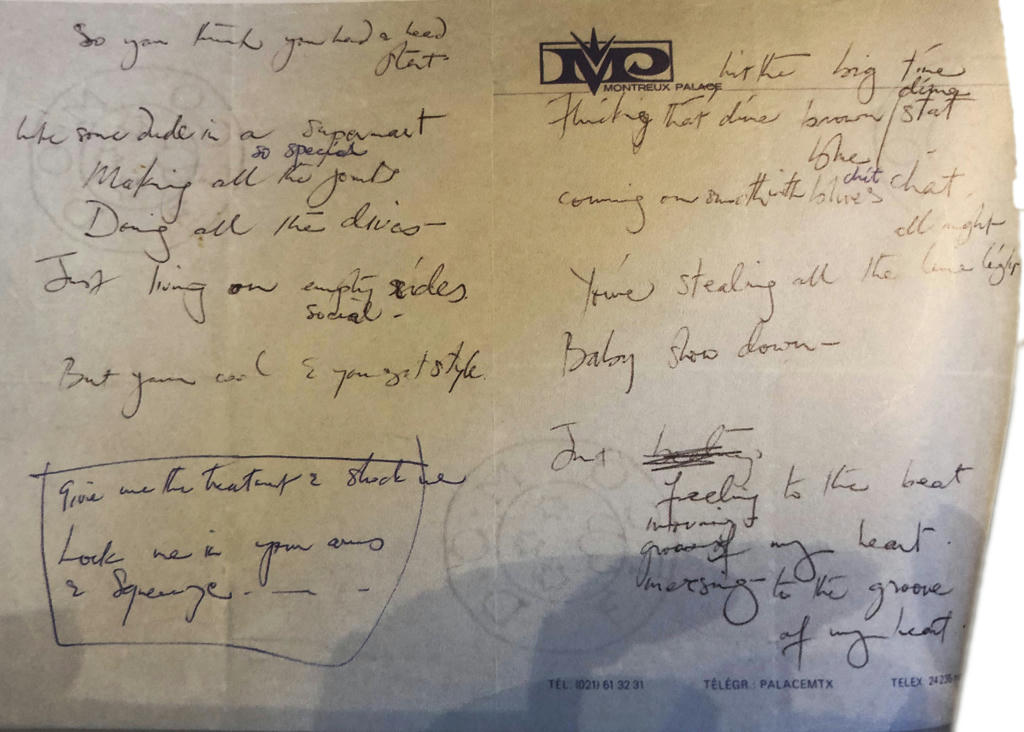 So you think you had a head
start
like some dude in a supermart
so special
Making all the joints
Doing all the dives
Just living on empty sides.
social -
But your cool & you got style.
Give me the treatment & shock me
Lock me in your arms
& Squeeze. — -
MP
MONTREUX PALACE
hit the big time
dime
that dime brown / stat
blue
coming on smooth with blues chit chat.
all night
You're stealing all the lime light
Baby slow down -
Just
feeling to the beat
moving +
groove of my heart.
to the groove
of my heart.
TEL. (021) 61 32 31
TÉLÉGR.: PALACEMTX
TELEX 24